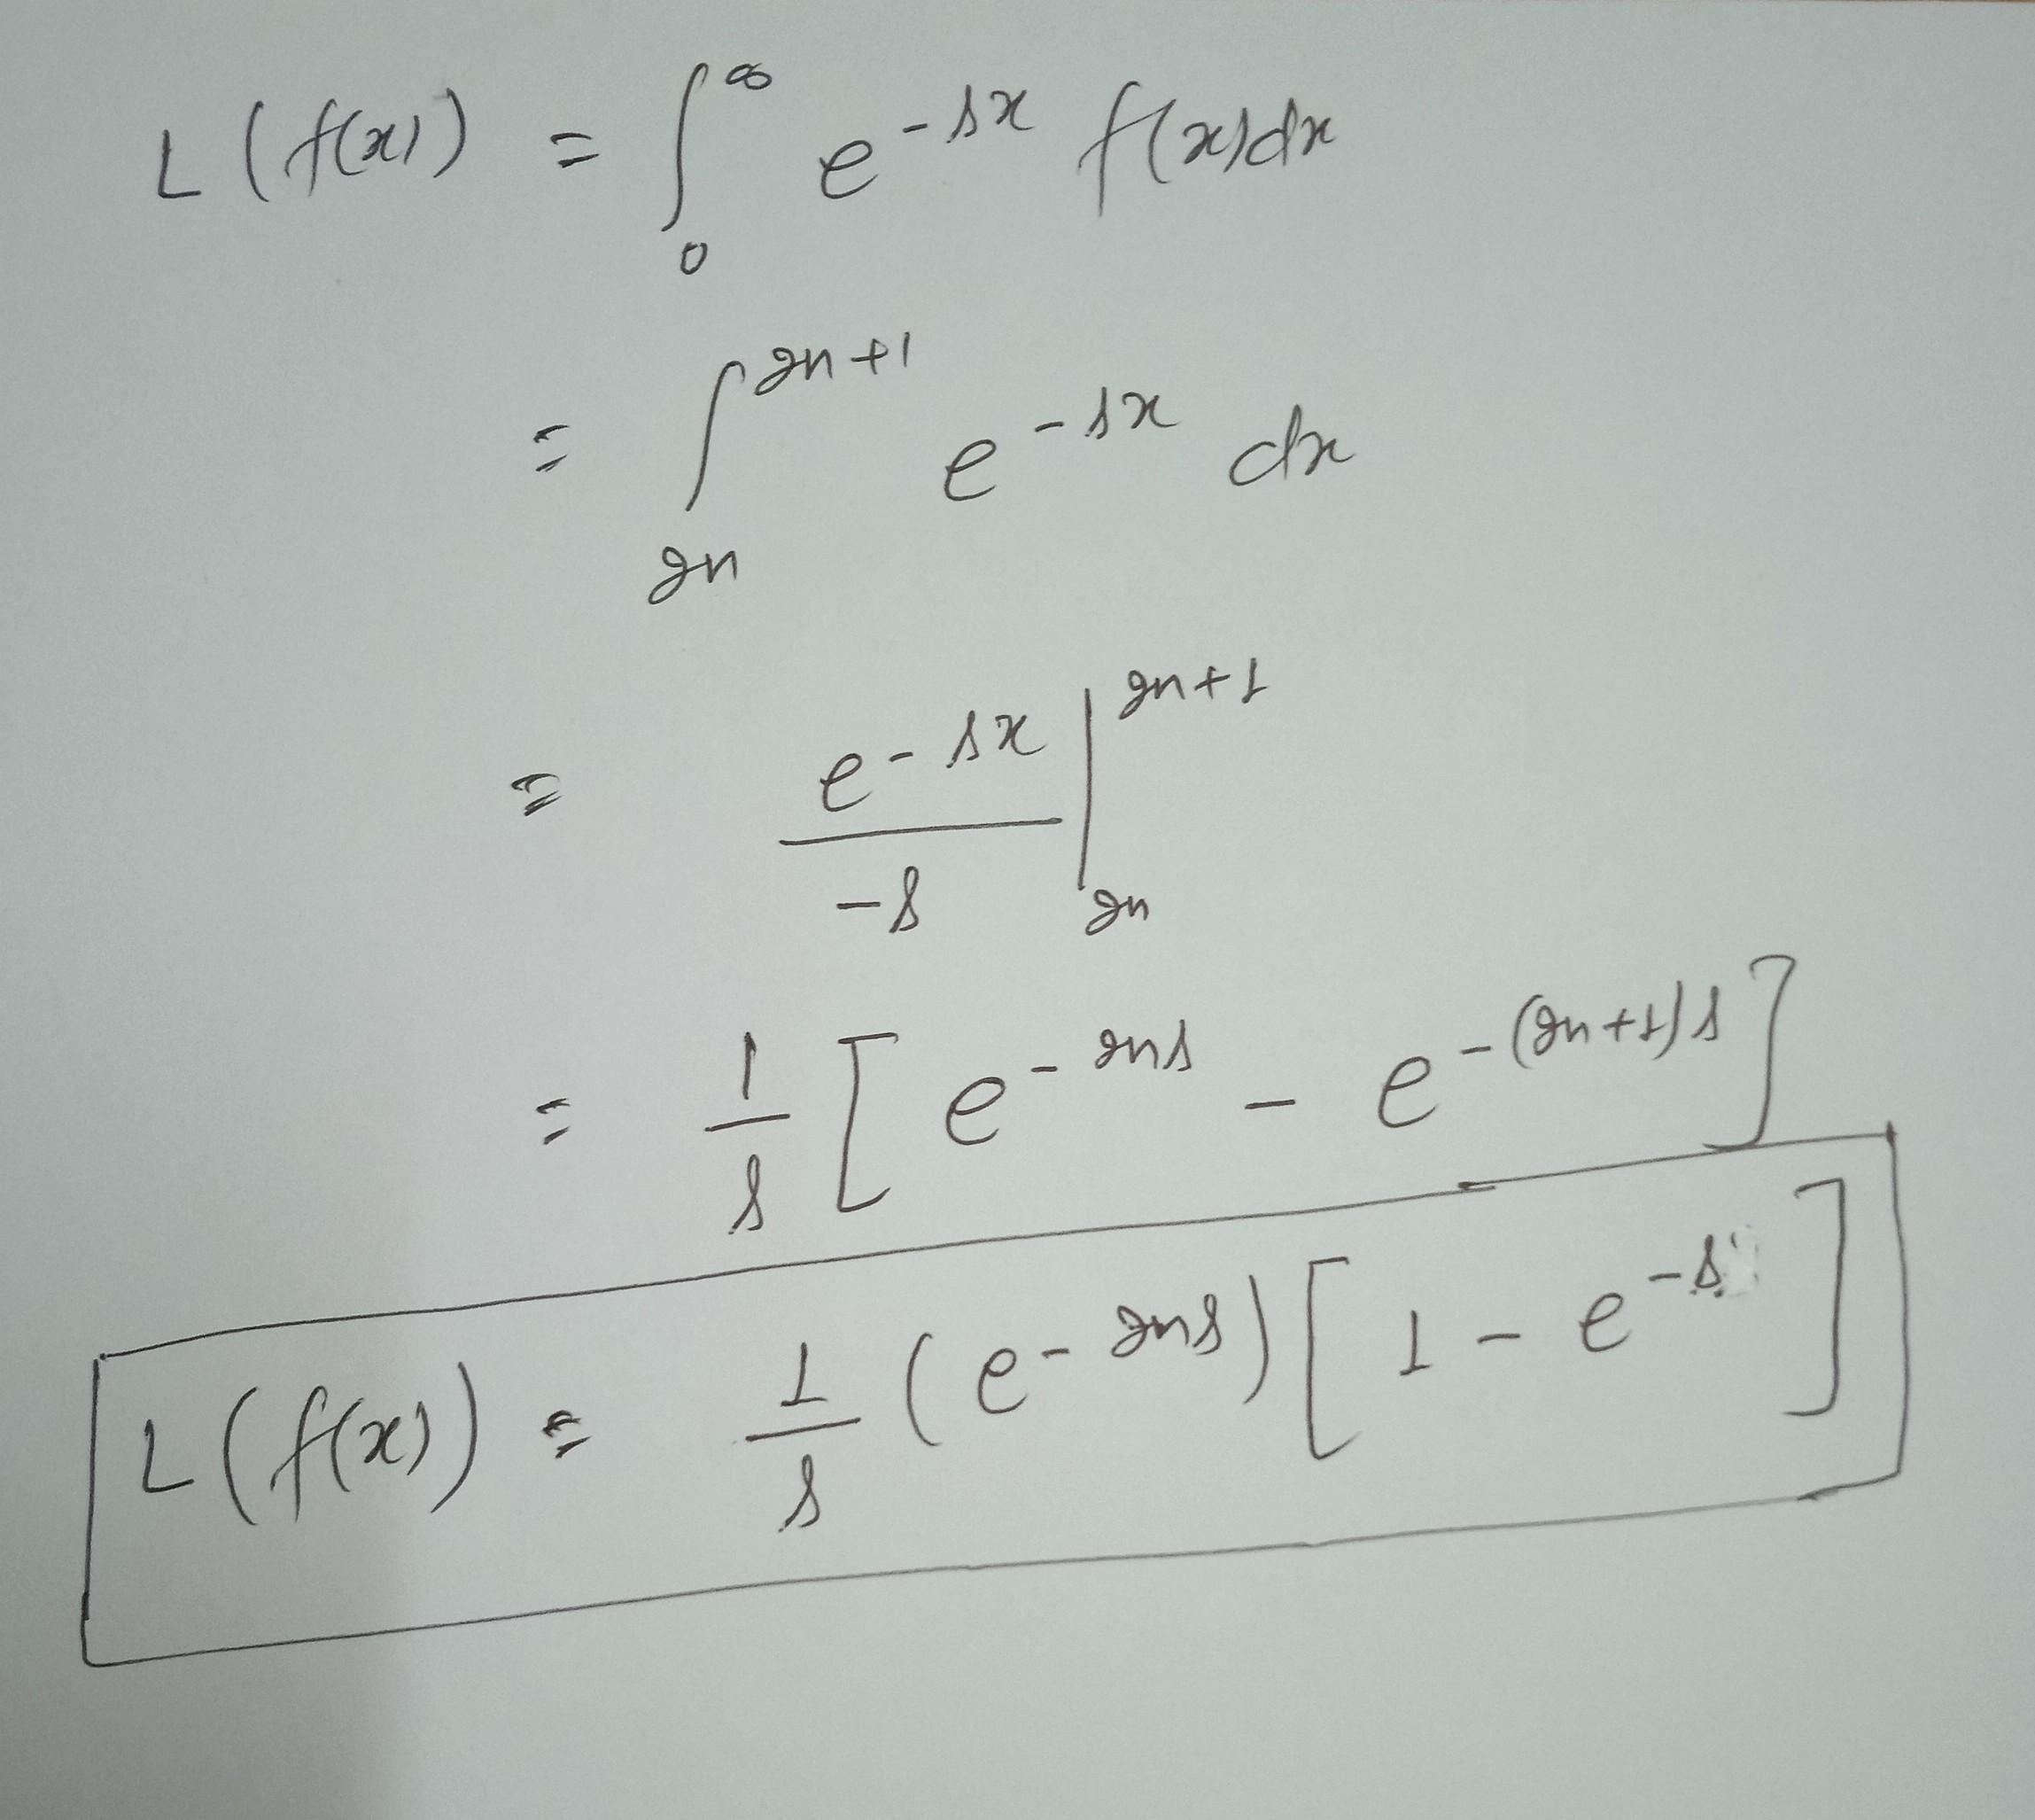 L(f(x)) = ∫₀^∞ e^{-sx} f(x)dx
= ∫_{2n}^{2n+1} e^{-sx} dx
= \frac{e^{-sx}}{-s} |_{2n}^{2n+1}
= \frac{1}{s} [ e^{-2ns} - e^{-(2n+1)s} ]
L(f(x)) = \frac{1}{s} (e^{-2ns}) [ 1 - e^{-s} ]